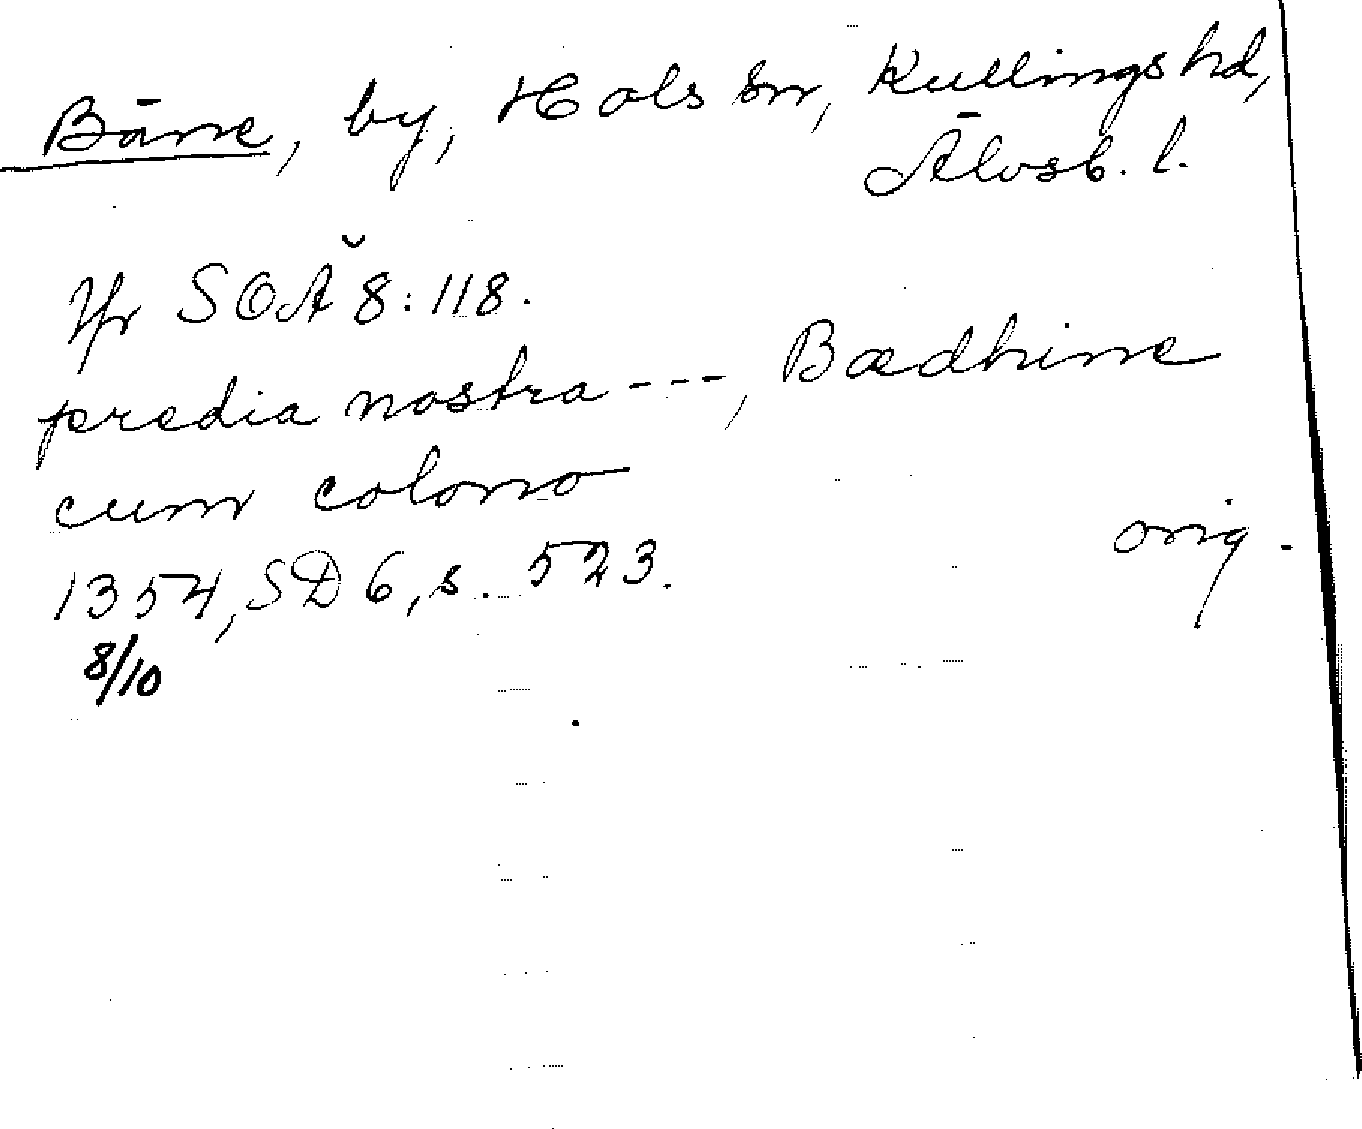 Bāne, by, Hols sn, Kullings hd,
Älvsb. l.
Jfr SOÄ 8:118.
predia nostra ---, Bædhine
cum colono
1354, SD 6, s. 523. orig.
8/10